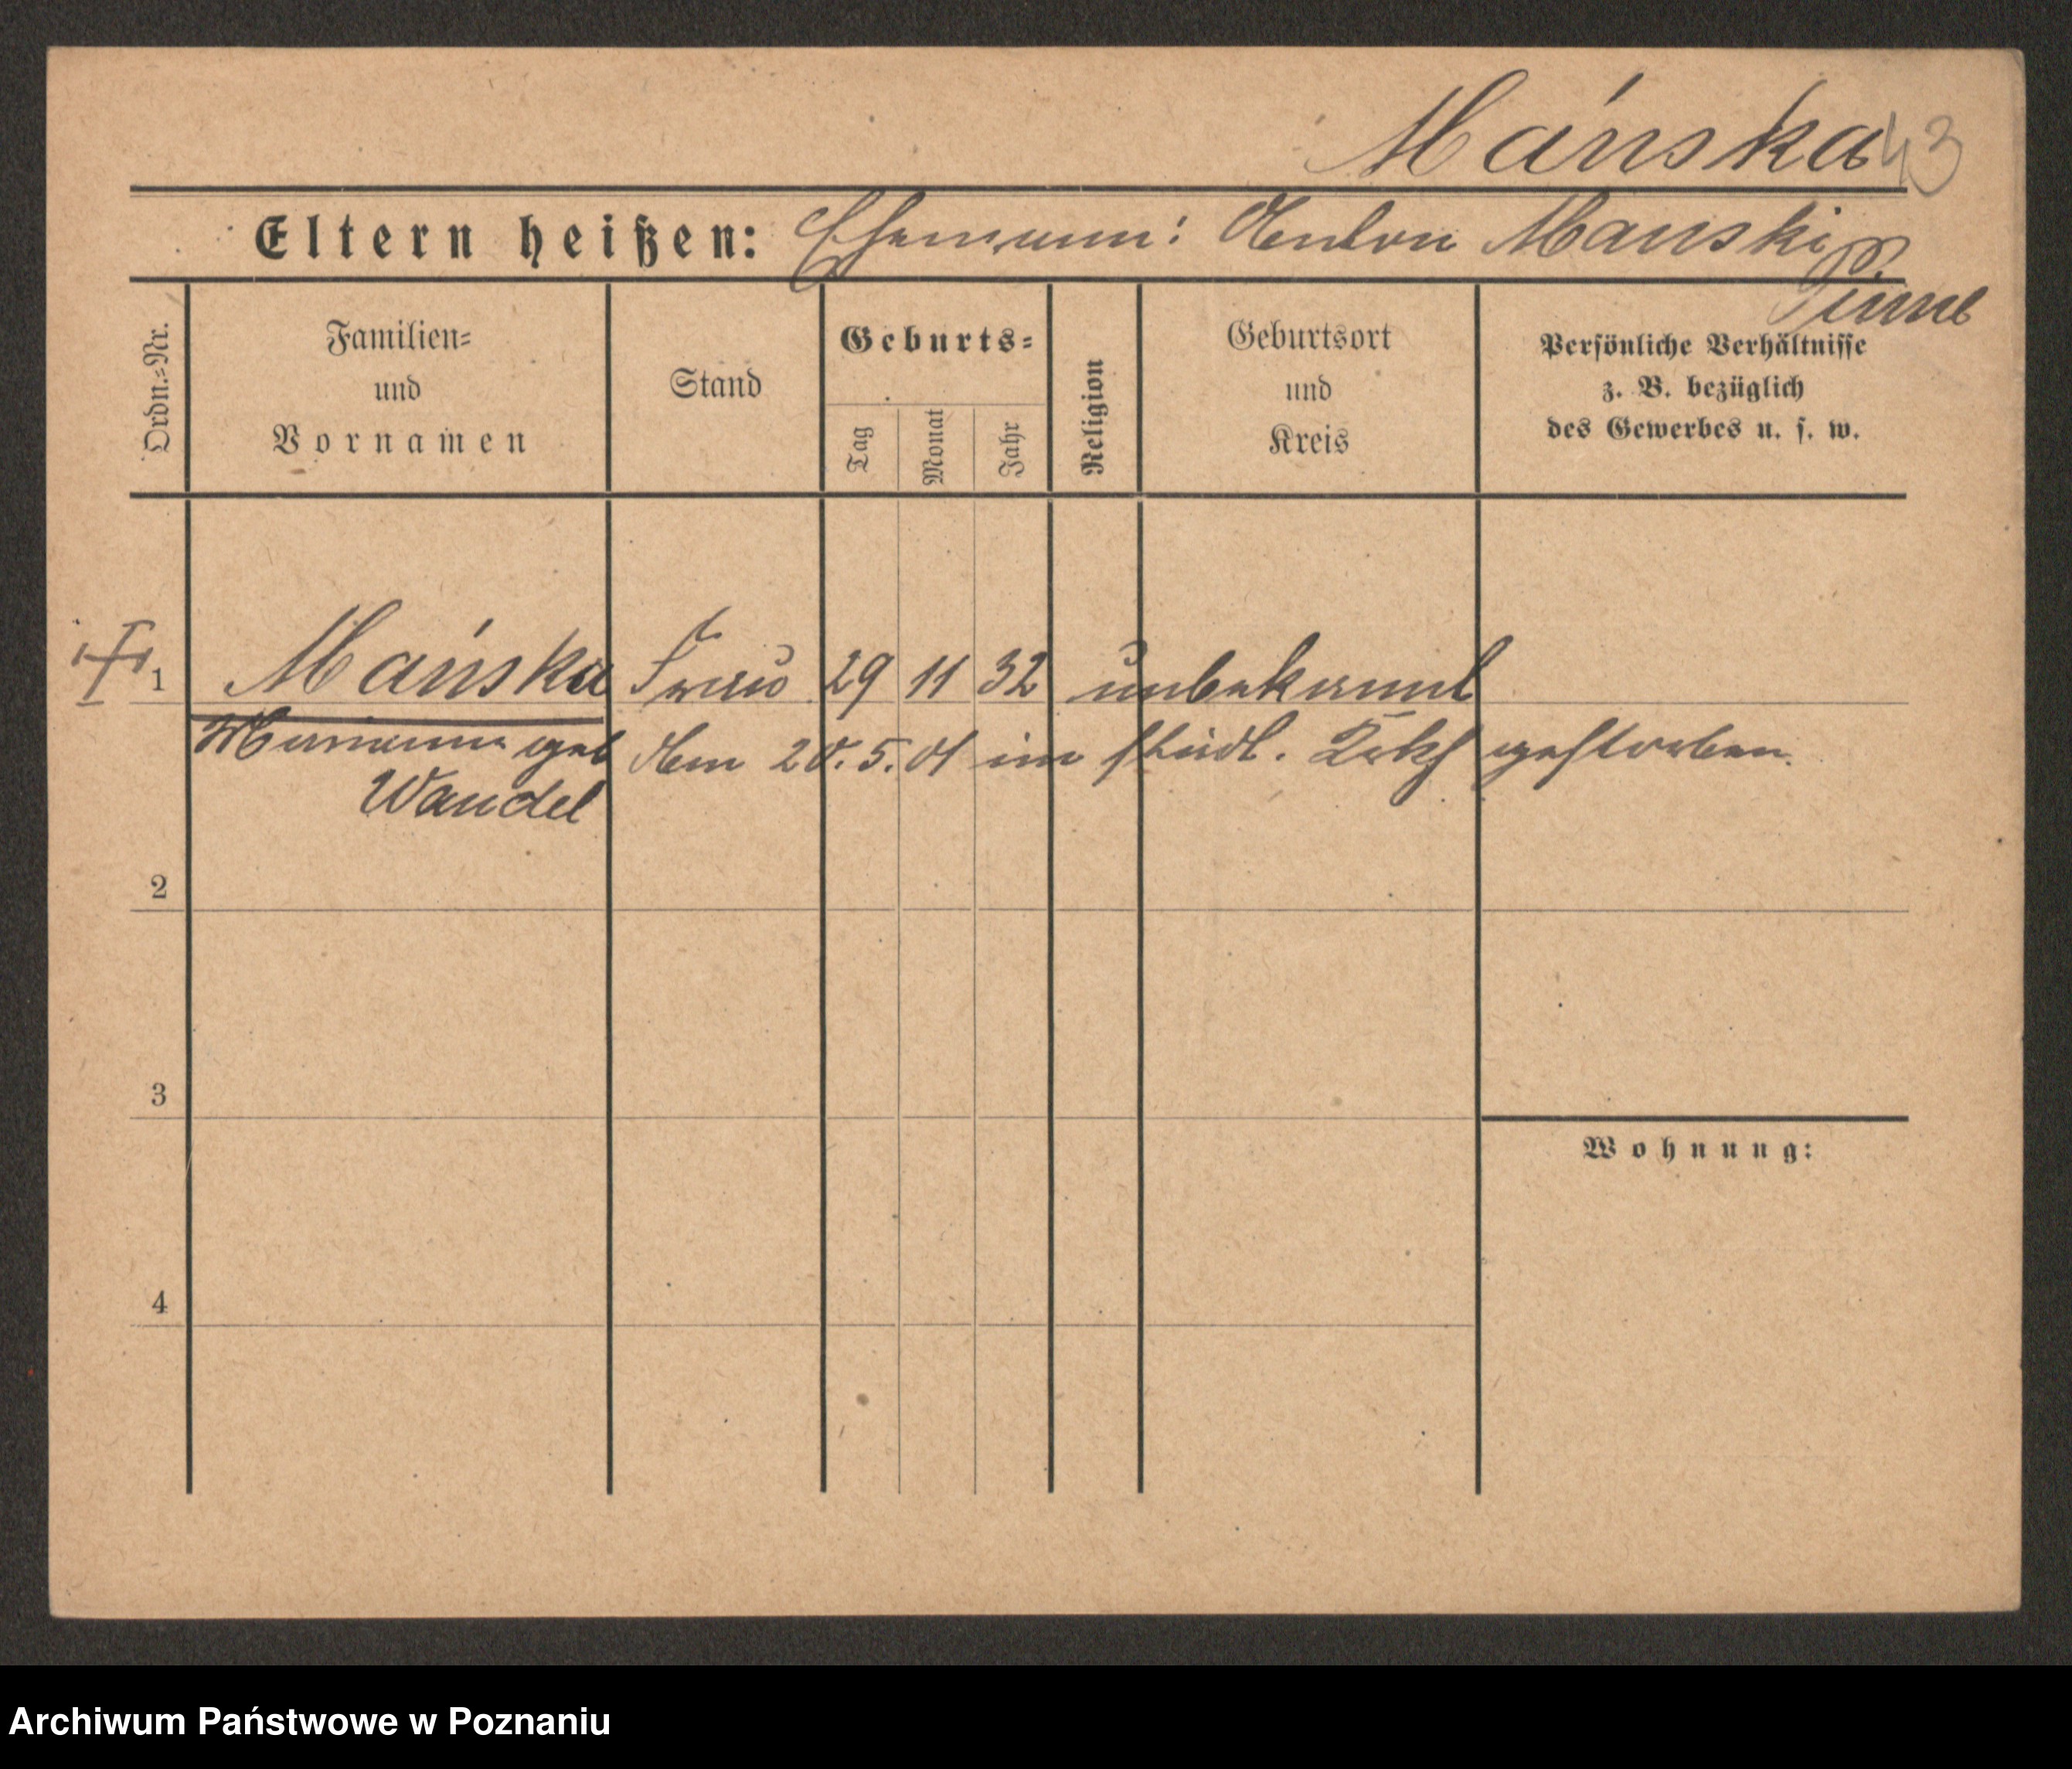 Mańska 43
Eltern heißen: Ehemann: Anton Manski
Pinne
Ordn.=Nr.
Familien=
und
Vornamen
Stand
Geburts=
Tag
Monat
Jahr
Religion
Geburtsort
und
Kreis
Persönliche Verhältnisse
z. B. bezüglich
des Gewerbes u. s. w.
1 Mańska Frau 29 11 32 unbekannt
Marianna geb Am 20.5.01 im städt. Krkh gestorben.
Wandel
2
3
Wohnung:
4
Archiwum Państwowe w Poznaniu